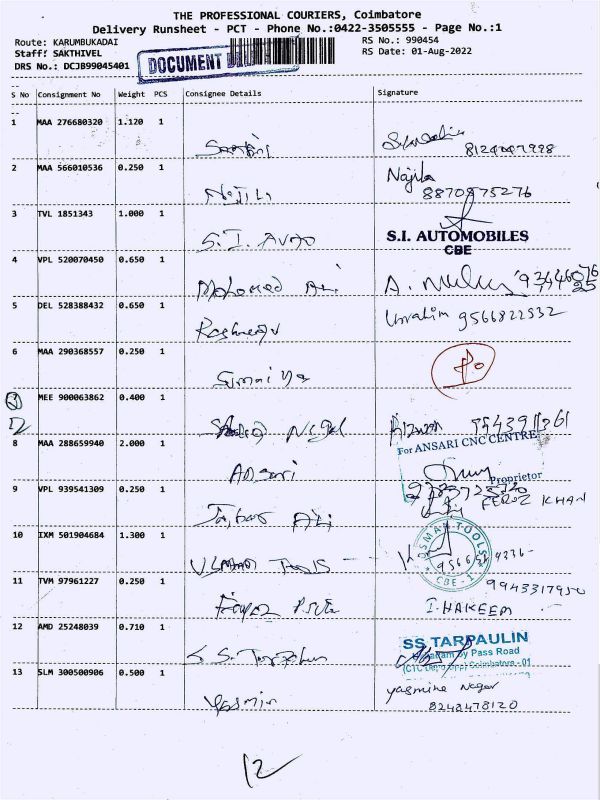 THE PROFESSIONAL COURIERS, Coimbatore
Delivery Runsheet - PCT - Phone No.:0422-3505555 - Page No.:1
Route: KARUMBUKADAI RS No.: 990454
Staff: SAKTHIVEL RS Date: 01-Aug-2022
DRS No.: DCJB99045401 DOCUMENT
S No Consignment No Weight PCS Consignee Details Signature
1 MAA 276680320 1.120 1
2 MAA 566010536 0.250 1 Najila
Najila 8870975276
3 TVL 1851343 1.000 1 S.I. Auto
S.I. AUTOMOBILES
CBE
4 VPL 520070450 0.650 1 Mohamed Ali
5 DEL 528388432 0.650 1
Ibrahim 9566822532
6 MAA 290368557 0.250 1 Sumaiya
MEE 900063862 0.400 1
Rizwan
8 MAA 288659940 2.000 1 Ansari
For ANSARI CNC CENTRE
Proprietor
9 VPL 939541309 0.250 1 Ali
FEROZ KHAN
10 IXM 501904684 1.300 1
OSMAN TOOLS
CBE - 1
11 TVM 97961227 0.250 1
9943317950
I. HAKEEM
12 AMD 25248039 0.710 1 S.S. Tarpaulin
SS TARPAULIN
By Pass Road
Coimbatore - 01
13 SLM 300500906 0.500 1 Yasmin
yasmine Nagar
8248478120
12